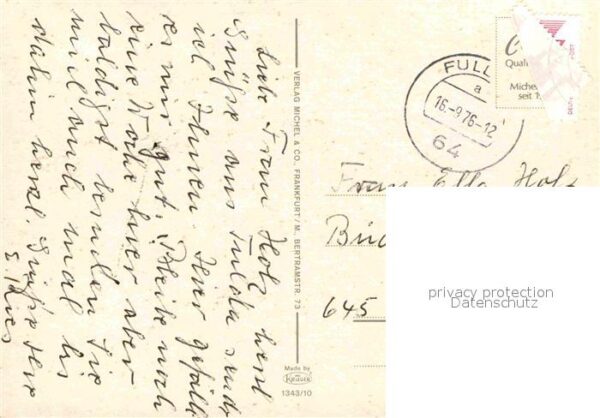 Liebe Frau Holz, herzl.
Grüße aus Fulda sendet
ich Ihnen. Hier gefällt
es mir gut. Bleibe noch
eine Woche hier aber
baldigst Sie
mich auch mal bis
dahin herzl. Grüße Ihre
VERLAG MICHEL & CO., FRANKFURT / M., BERTRAMSTR. 73
Made by
Krüger
1343/10
FULL
a
16.-9.76-12
64
Qual
Michel
seit 1
Frau Ella Holz
645
privacy protection
Datenschutz